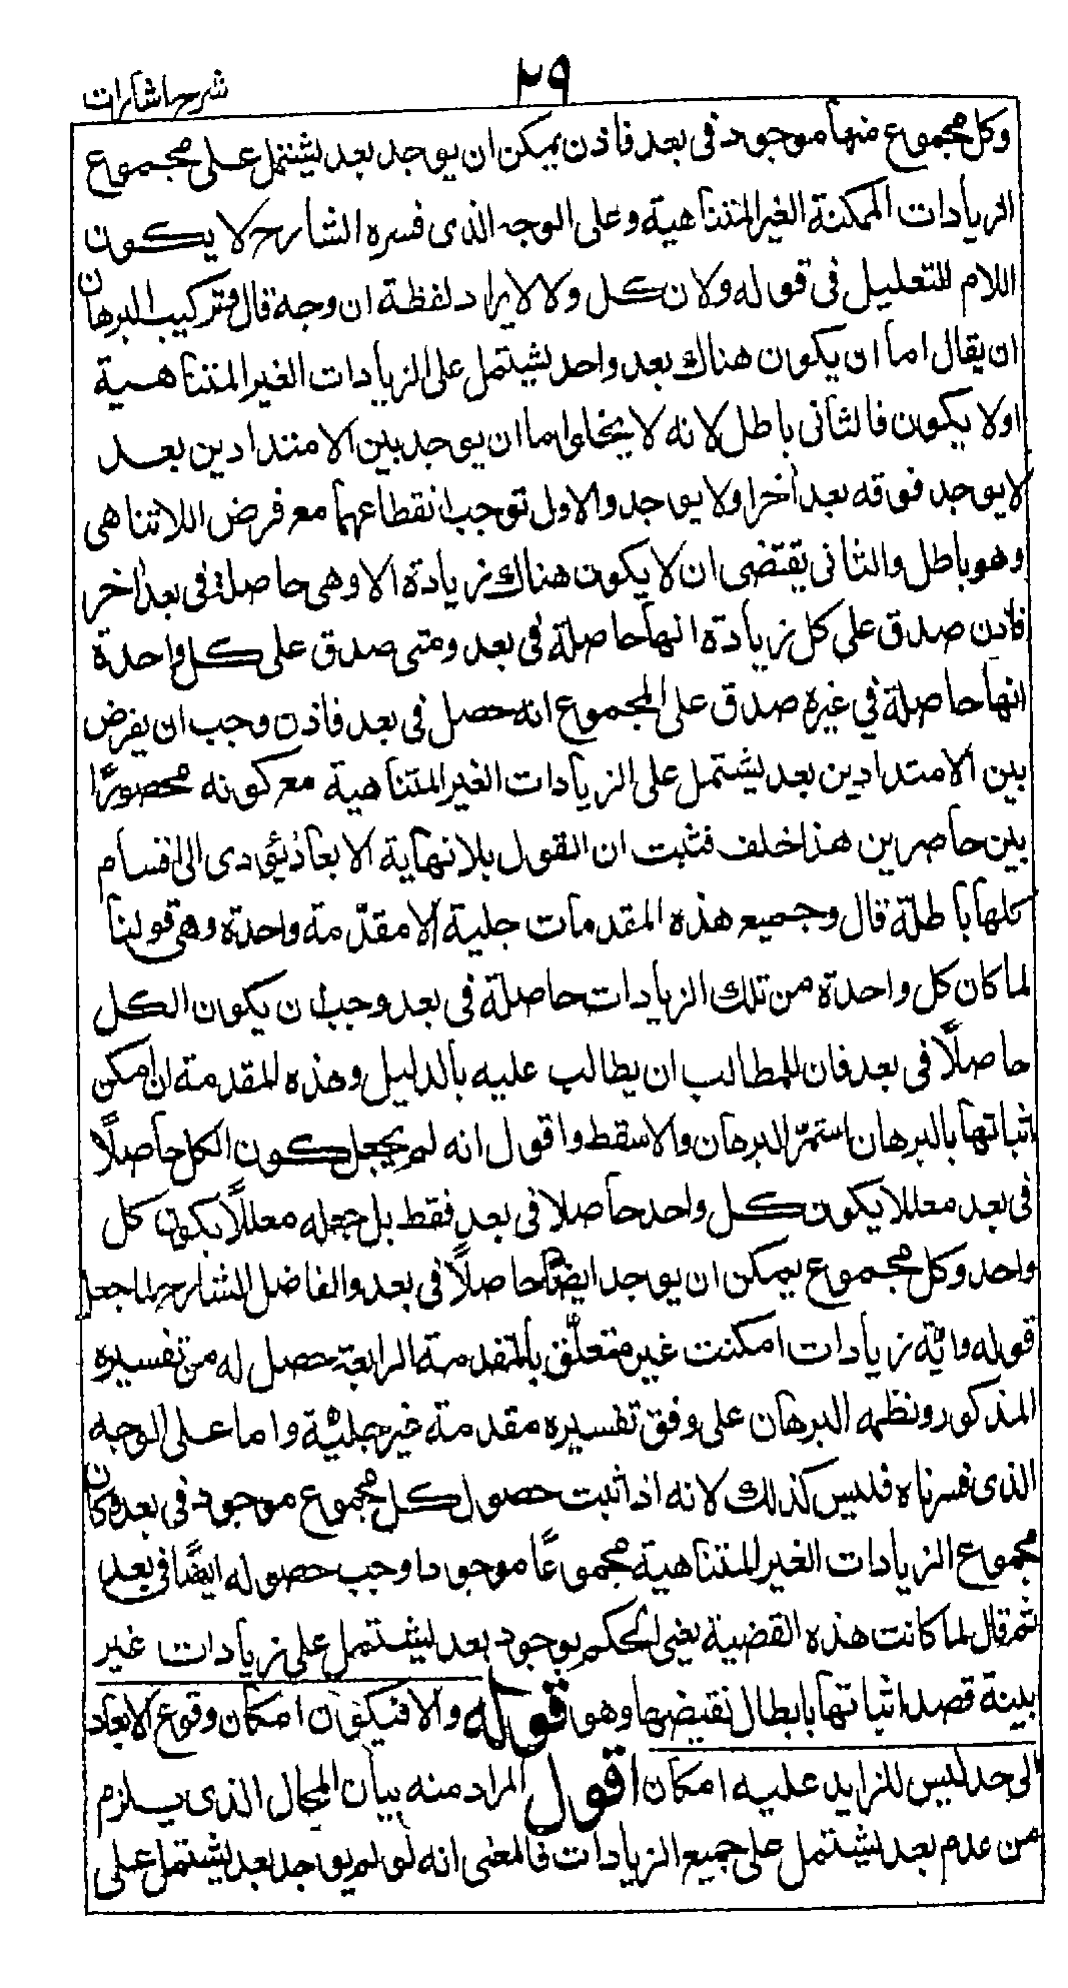 ٢٩
شرح اشارات
وكل مجموع منها موجود فى بعد فاذن يمكن ان يوجد بعد يشتمل على مجموع
الزيادات الممكنة الغير المتناهية وعلى الوجه الذى فسره الشارح لا يكون
اللام للتعليل فى قوله ولان كل ولا لايراد لفظة ان وجه قال فتركيب البرهان
ان يقال اما ان يكون هناك بعد واحد يشتمل على الزيادات الغير المتناهية
اولا يكون فالثانى باطل لانه لا يخلو اما ان يوجد بين الامتدادين بعد
لا يوجد فوقه بعد آخر اولا يوجد والاول توجب انقطاعهما مع فرض اللاتناهى
وهو باطل والثانى يقتضى ان لا يكون هناك زيادة الا وهى حاصلة فى بعد اخر
فاذن صدق على كل زيادة انها حاصلة فى بعد ومتى صدق على كل واحدة
انها حاصلة في غيره صدق على المجموع انه حصل فى بعد فاذن وجب ان يفرض
بين الامتدادين بعد يشتمل على الزيادات الغير المتناهية مع كونه محصورًا
بين حاصرين هذا خلف فثبت ان القول بلا نهاية الابعاد يؤدى الى اقسام
كلها باطلة قال وجميع هذه المقدمات جلية الا مقدّمة واحدة وهى قولنا
لما كان كل واحدة من تلك الزيادات حاصلة فى بعد وجب ان يكون الكل
حاصلًا فى بعد فان للمطالب ان يطالب عليه بالدليل وهذه المقدمة ان امكن
اثباتها بالبرهان استمرّ البرهان والا سقط واقول انه لم يجعل كون الكل حاصلًا
فى بعد معللا بكون كل واحد حاصلا فى بعد فقط بل جعله معللًا بكون كل
واحد وكل مجموع يمكن ان يوجد ايضًا حاصلًا فى بعد والفاضل الشارح لما جعل
قوله واية زيادات امكنت غير متعلّق بالمقدمة الرابعة حصل له من تفسيره
المذكور ونظمه البرهان على وفق تفسيره مقدمة غير جليّة واما على الوجه
الذى فسرناه فليس كذلك لانه اذا ثبت حصول كل مجموع موجود فى بعد وكان
مجموع الزيادات الغير المتناهية مجموعًا موجودا وجب حصوله ايضًا فى بعد
ثم قال لما كانت هذه القضية يعنى الحكم بوجود بعد يشتمل على زيادات غير
بينة قصد اثباتها بابطال نقيضها وهو قوله والا فيكون امكان وقوع الابعاد
الى حد ليس للزايد عليه امكان اقول المراد منه بيان المحال الذى يلزم
من عدم بعد يشتمل على جميع الزيادات فالمعنى انه لو لم يوجد بعد يشتمل على